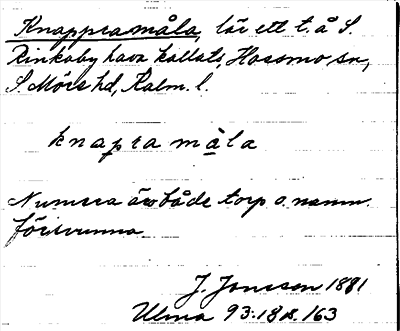 Knappramåla, lär ett t. å S.
Rinkaby hava kallats, Hossmo sn,
S. Möre hd, Kalm. l.
knapra måla
Numera äro både torp o. namn
försvunna
J. Jonsson 1881
Ulma 93:18 s. 163